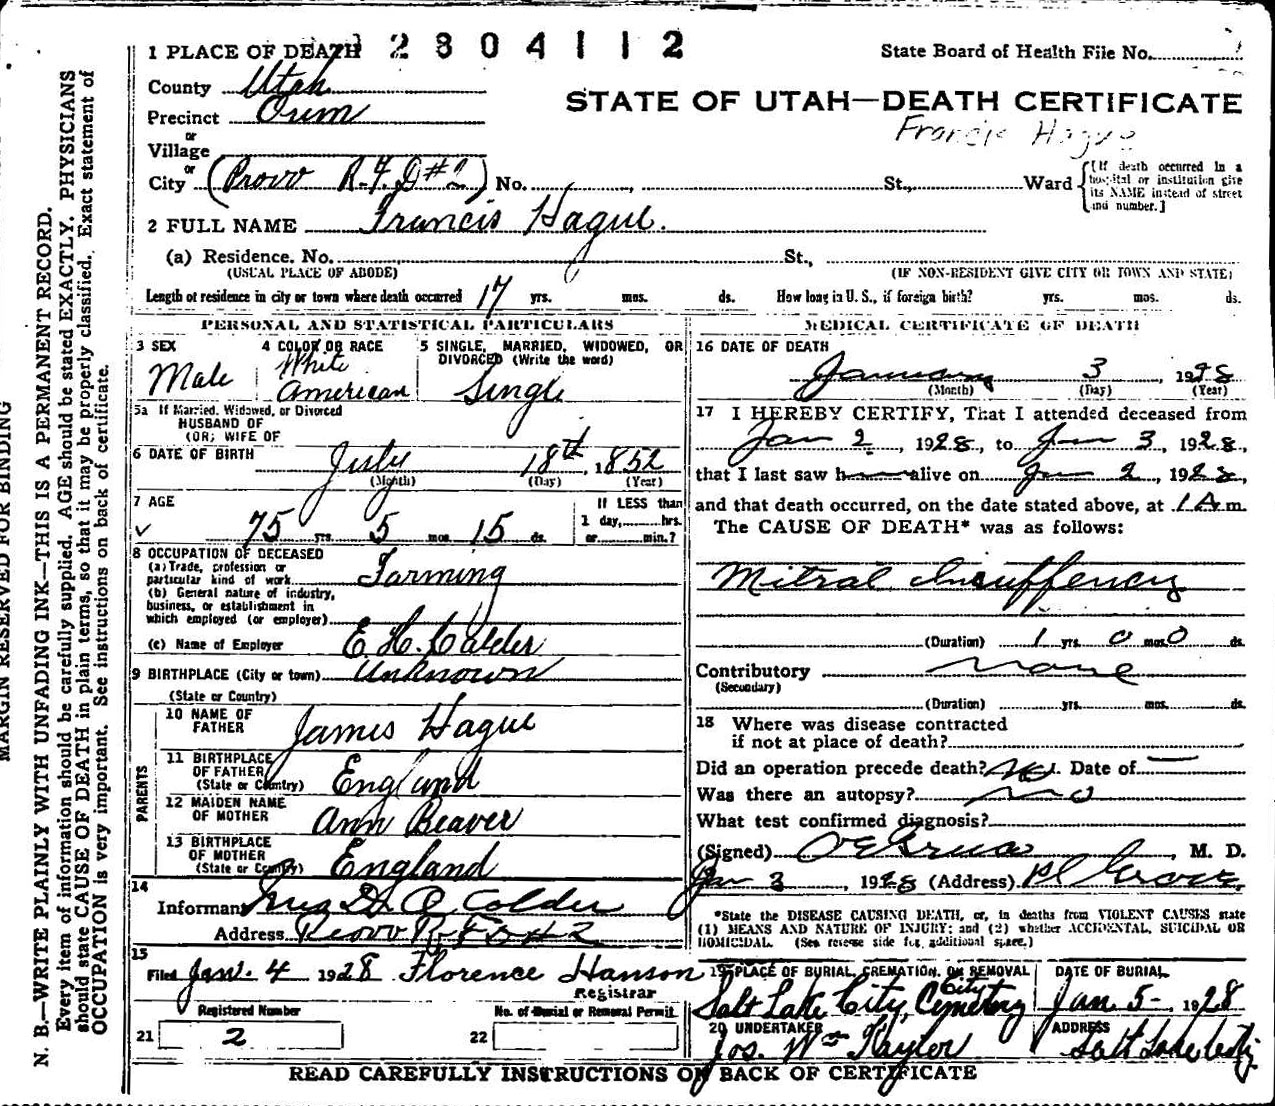 1 PLACE OF DEATH 2804112 State Board of Health File No.
County Utah
STATE OF UTAH—DEATH CERTIFICATE
Precinct Orem
Francis Hague
or
Village
or
City (Provo R.F.D #2) No. , St., Ward
[If death occurred in a hospital or institution give its NAME instead of street and number.]
2 FULL NAME Francis Hague.
(a) Residence. No. St.,
(USUAL PLACE OF ABODE) (IF NON-RESIDENT GIVE CITY OR TOWN AND STATE)
Length of residence in city or town where death occurred 17 yrs. mos. ds. How long in U. S., if foreign birth? yrs. mos. ds.
PERSONAL AND STATISTICAL PARTICULARS
3 SEX 4 COLOR OR RACE 5 SINGLE, MARRIED, WIDOWED, OR
DIVORCED (Write the word)
Male White American Single
5a If Married, Widowed, or Divorced
HUSBAND OF
(OR) WIFE OF
6 DATE OF BIRTH July 18th, 1852
(Month) (Day) (Year)
7 AGE If LESS than
75 yrs. 5 mos. 15 ds. 1 day, hrs.
or min.?
8 OCCUPATION OF DECEASED
(a) Trade, profession or
particular kind of work Farming
(b) General nature of industry,
business, or establishment in
which employed (or employer)
(c) Name of Employer E. H. Calder
9 BIRTHPLACE (City or town) Unknown
(State or Country)
PARENTS
10 NAME OF
FATHER James Hague
11 BIRTHPLACE
OF FATHER
(State or Country) England
12 MAIDEN NAME
OF MOTHER Ann Beaver
13 BIRTHPLACE
OF MOTHER
(State or Country) England
14
Informant Calder
Address Provo R F D # 2
15
Filed Jan. 4 1928 Florence Hanson
Registrar
Registered Number No. of Burial or Removal Permit
21 2 22
MEDICAL CERTIFICATE OF DEATH
16 DATE OF DEATH
January 3, 1928
(Month) (Day) (Year)
17 I HEREBY CERTIFY, That I attended deceased from
Jan 2, 1928, to Jan 3, 1928,
that I last saw h alive on Jan 2, 1928,
and that death occurred, on the date stated above, at 1 A m.
The CAUSE OF DEATH* was as follows:
Mitral Insuffency
(Duration) 1 yrs. 0 mos. 0 ds.
Contributory None
(Secondary)
(Duration) yrs. mos. ds.
18 Where was disease contracted
if not at place of death?
Did an operation precede death? No. Date of —
Was there an autopsy? no
What test confirmed diagnosis?
(Signed) , M. D.
Jan 3, 1928 (Address) Pl Grove.
*State the DISEASE CAUSING DEATH, or, in deaths from VIOLENT CAUSES state
(1) MEANS AND NATURE OF INJURY; and (2) whether ACCIDENTAL, SUICIDAL OR
HOMICIDAL. (See reverse side for additional space.)
19 PLACE OF BURIAL, CREMATION, OR REMOVAL DATE OF BURIAL
Salt Lake City, City Cemetery Jan. 5- 1928
20 UNDERTAKER ADDRESS
Jos. Wm Taylor Salt Lake City
READ CAREFULLY INSTRUCTIONS ON BACK OF CERTIFICATE
MARGIN RESERVED FOR BINDING
N. B.—WRITE PLAINLY WITH UNFADING INK—THIS IS A PERMANENT RECORD.
Every item of information should be carefully supplied. AGE should be stated EXACTLY. PHYSICIANS
should state CAUSE OF DEATH in plain terms, so that it may be properly classified. Exact statement of
OCCUPATION is very important. See instructions on back of certificate.